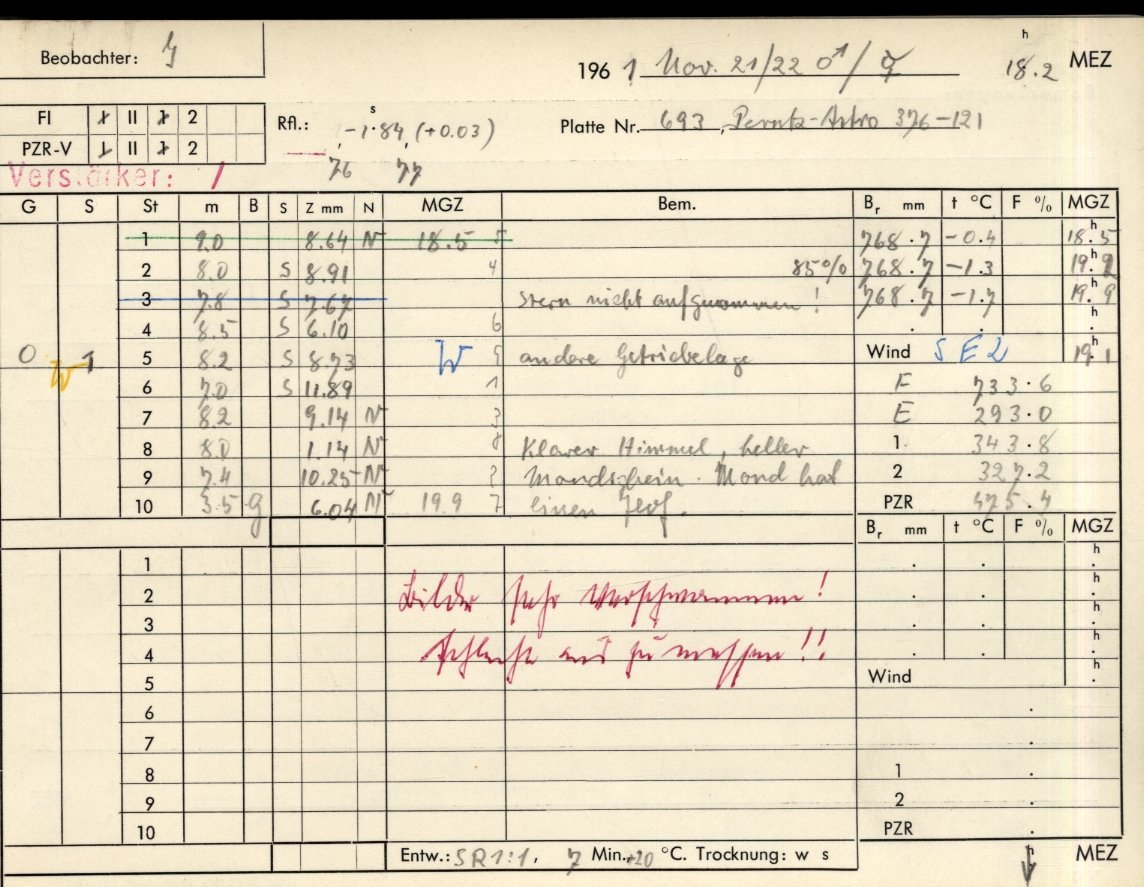 Beobachter:
1961 Nov. 21/22 ♂/☿ 18.2 h MEZ
FI II 2
PZR-V II 2
Rfl.: -1.84 s (+0.03)
76 77
Platte Nr. 693, Perutz-Astro 376-121
Verstärker: /
G S St m B S Z mm N MGZ Bem. Br mm t °C F % MGZ
1 9.0 8.64 N 18.5 5 768.7 -0.4 18.5 h
2 8.0 S 8.91 4 85% 768.7 -1.3 19.2 h
3 7.8 S 7.67 Stern nicht aufgenommen! 768.7 -1.7 19.9 h
4 8.5 S 6.10 6 . . h
0 W 1 5 8.2 S 8.73 W 5 andere Getriebelage Wind SE2 19.1 h
6 7.0 S 11.89 1 F 733.6
7 8.2 9.14 N 3 E 293.0
8 8.0 1.14 N 8 Klarer Himmel, heller 1. 343.8
9 7.4 10.25 N 2 Mondschein. Mond hat 2 327.2
10 3.5 g 6.04 N 19.9 7 einen Hof. PZR 475.4
Br mm t °C F % MGZ
1 . . h
2 Bilder sehr verschwommen! . . h
3 . . h
4 Schlecht aus zu messen!! . . h
5 Wind . h
6 .
7 .
8 1 .
9 2 .
10 PZR .
Entw.: SR 1:1, 7 Min., +20 °C. Trocknung: w s h MEZ